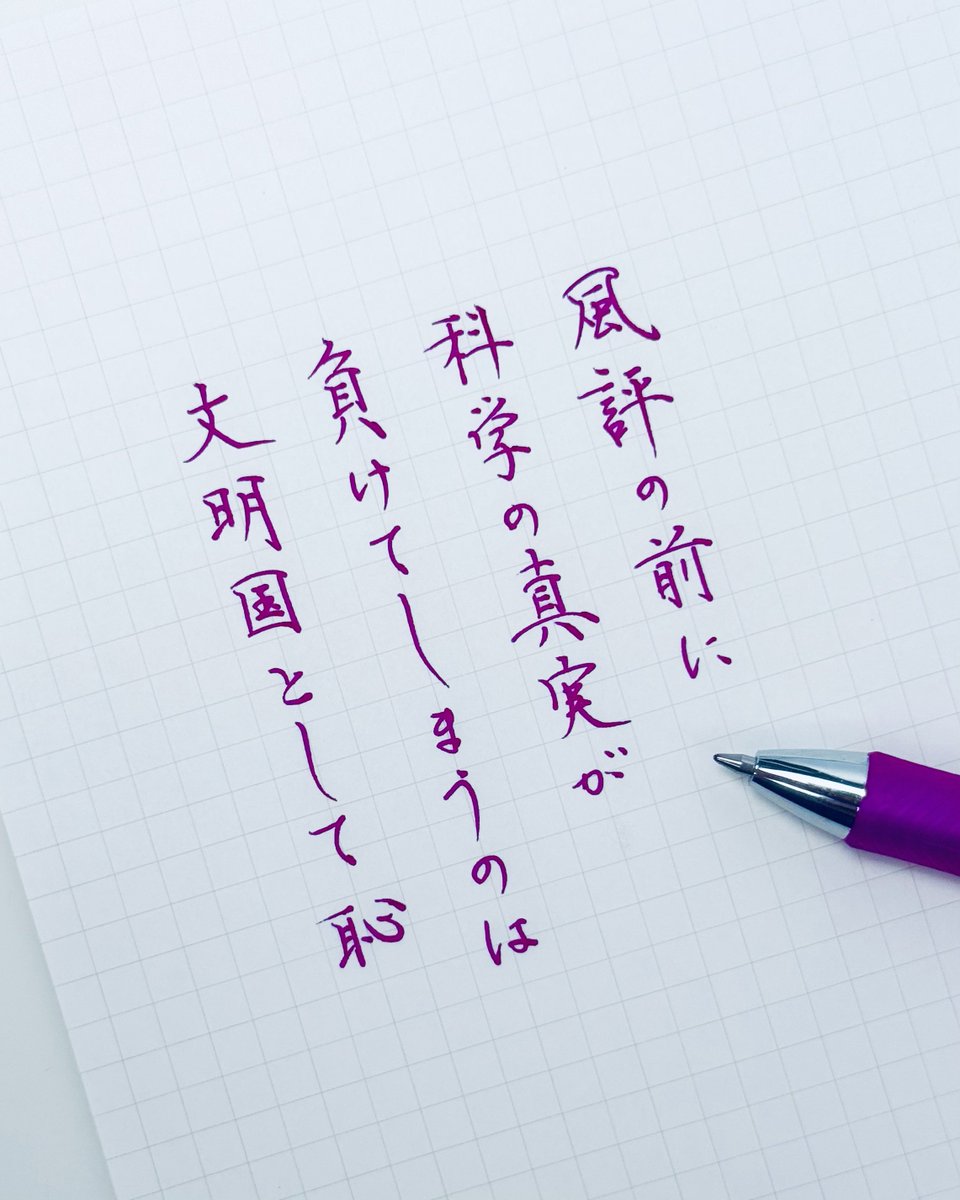 風評の前に
科学の真実が
負けてしまうのは
文明国として恥